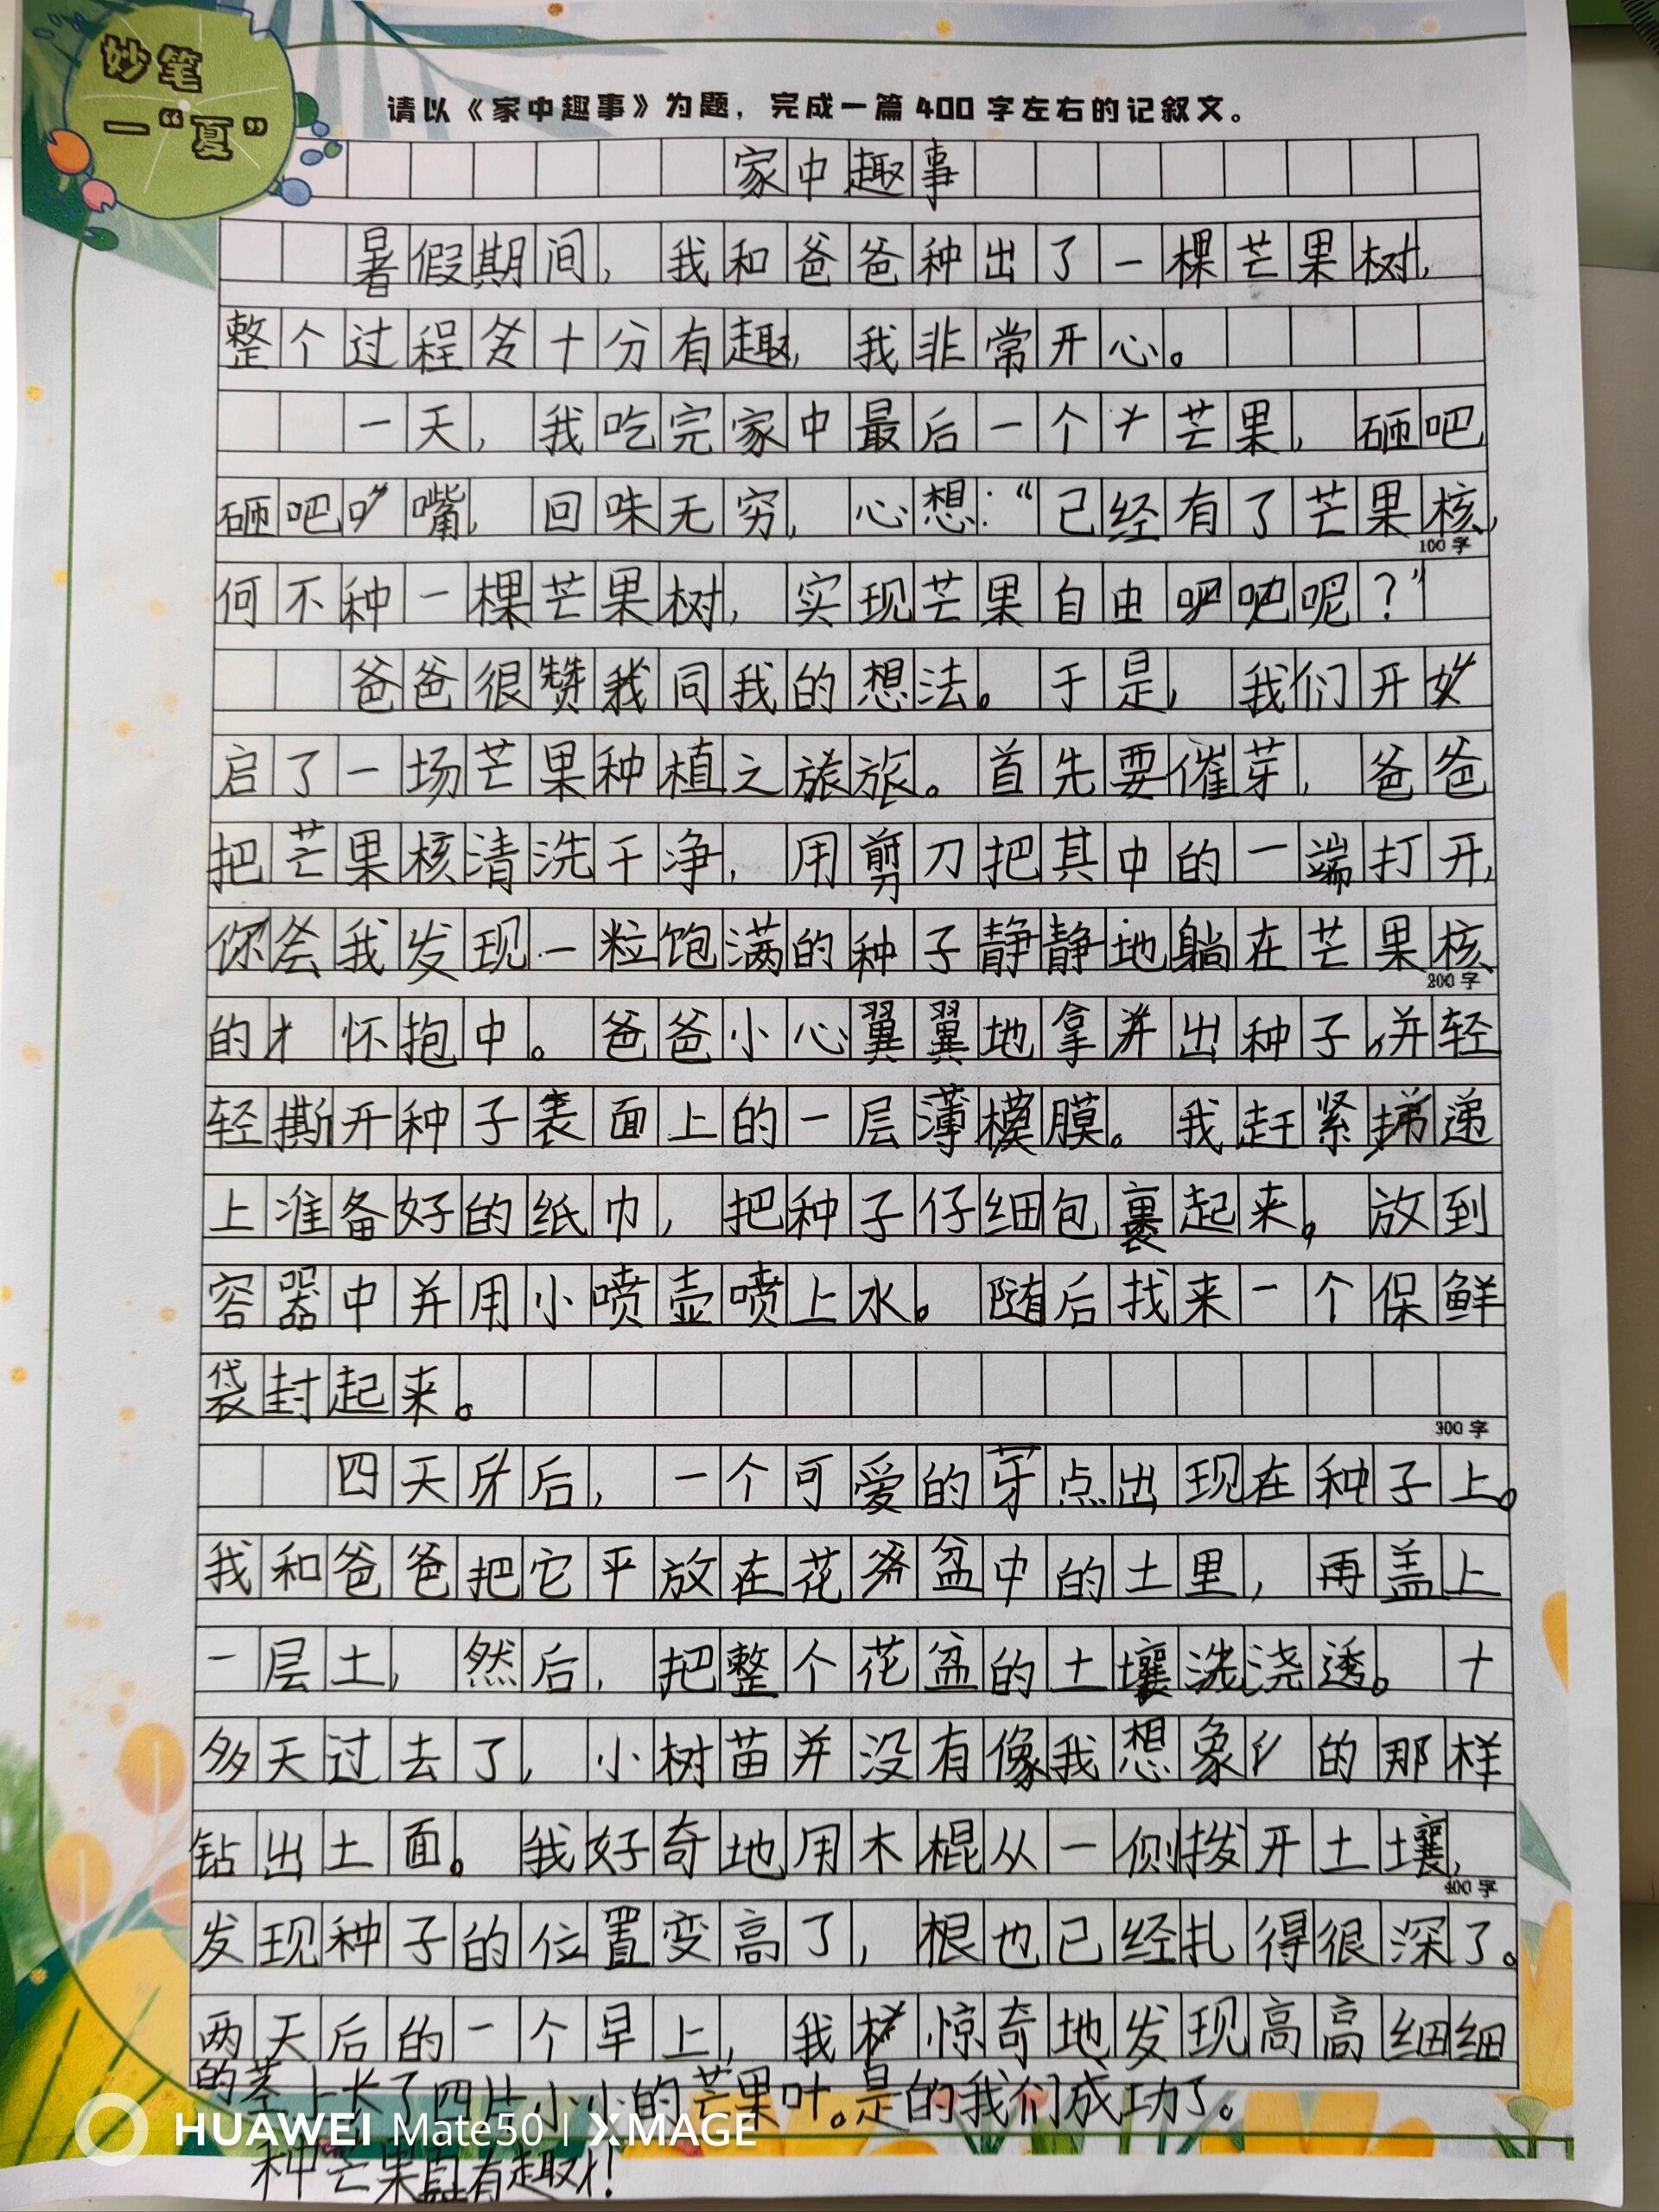 妙笔
一“夏”
请以《家中趣事》为题，完成一篇400字左右的记叙文。
家中趣事
暑假期间，我和爸爸种出了一棵芒果树，
整个过程十分有趣，我非常开心。
一天，我吃完家中最后一个芒果，砸吧
砸吧嘴，回味无穷，心想：“已经有了芒果核，
100字
何不种一棵芒果树，实现芒果自由呢？”
爸爸很赞同我的想法。于是，我们开
启了一场芒果种植之旅。首先要催芽，爸爸
把芒果核清洗干净，用剪刀把其中的一端打开，
你会我发现一粒饱满的种子静静地躺在芒果核
200字
的怀抱中。爸爸小心翼翼地拿出种子，并轻
轻撕开种子表面上的一层薄膜。我赶紧递
上准备好的纸巾，把种子仔细包裹起来，放到
容器中并用小喷壶喷上水。随后找来一个保鲜
袋封起来。
300字
四天后，一个可爱的芽点出现在种子上。
我和爸爸把它平放在花盆中的土里，再盖上
一层土，然后，把整个花盆的土壤浇透。十
多天过去了，小树苗并没有像我想象的那样
钻出土面。我好奇地用木棍从一侧拨开土壤，
400字
发现种子的位置变高了，根也已经扎得很深了。
两天后的一个早上，我惊奇地发现高高细细
的茎上长了四片小小的芒果叶。是的我们成功了。
种芒果真有趣！
HUAWEI Mate50 | XMAGE